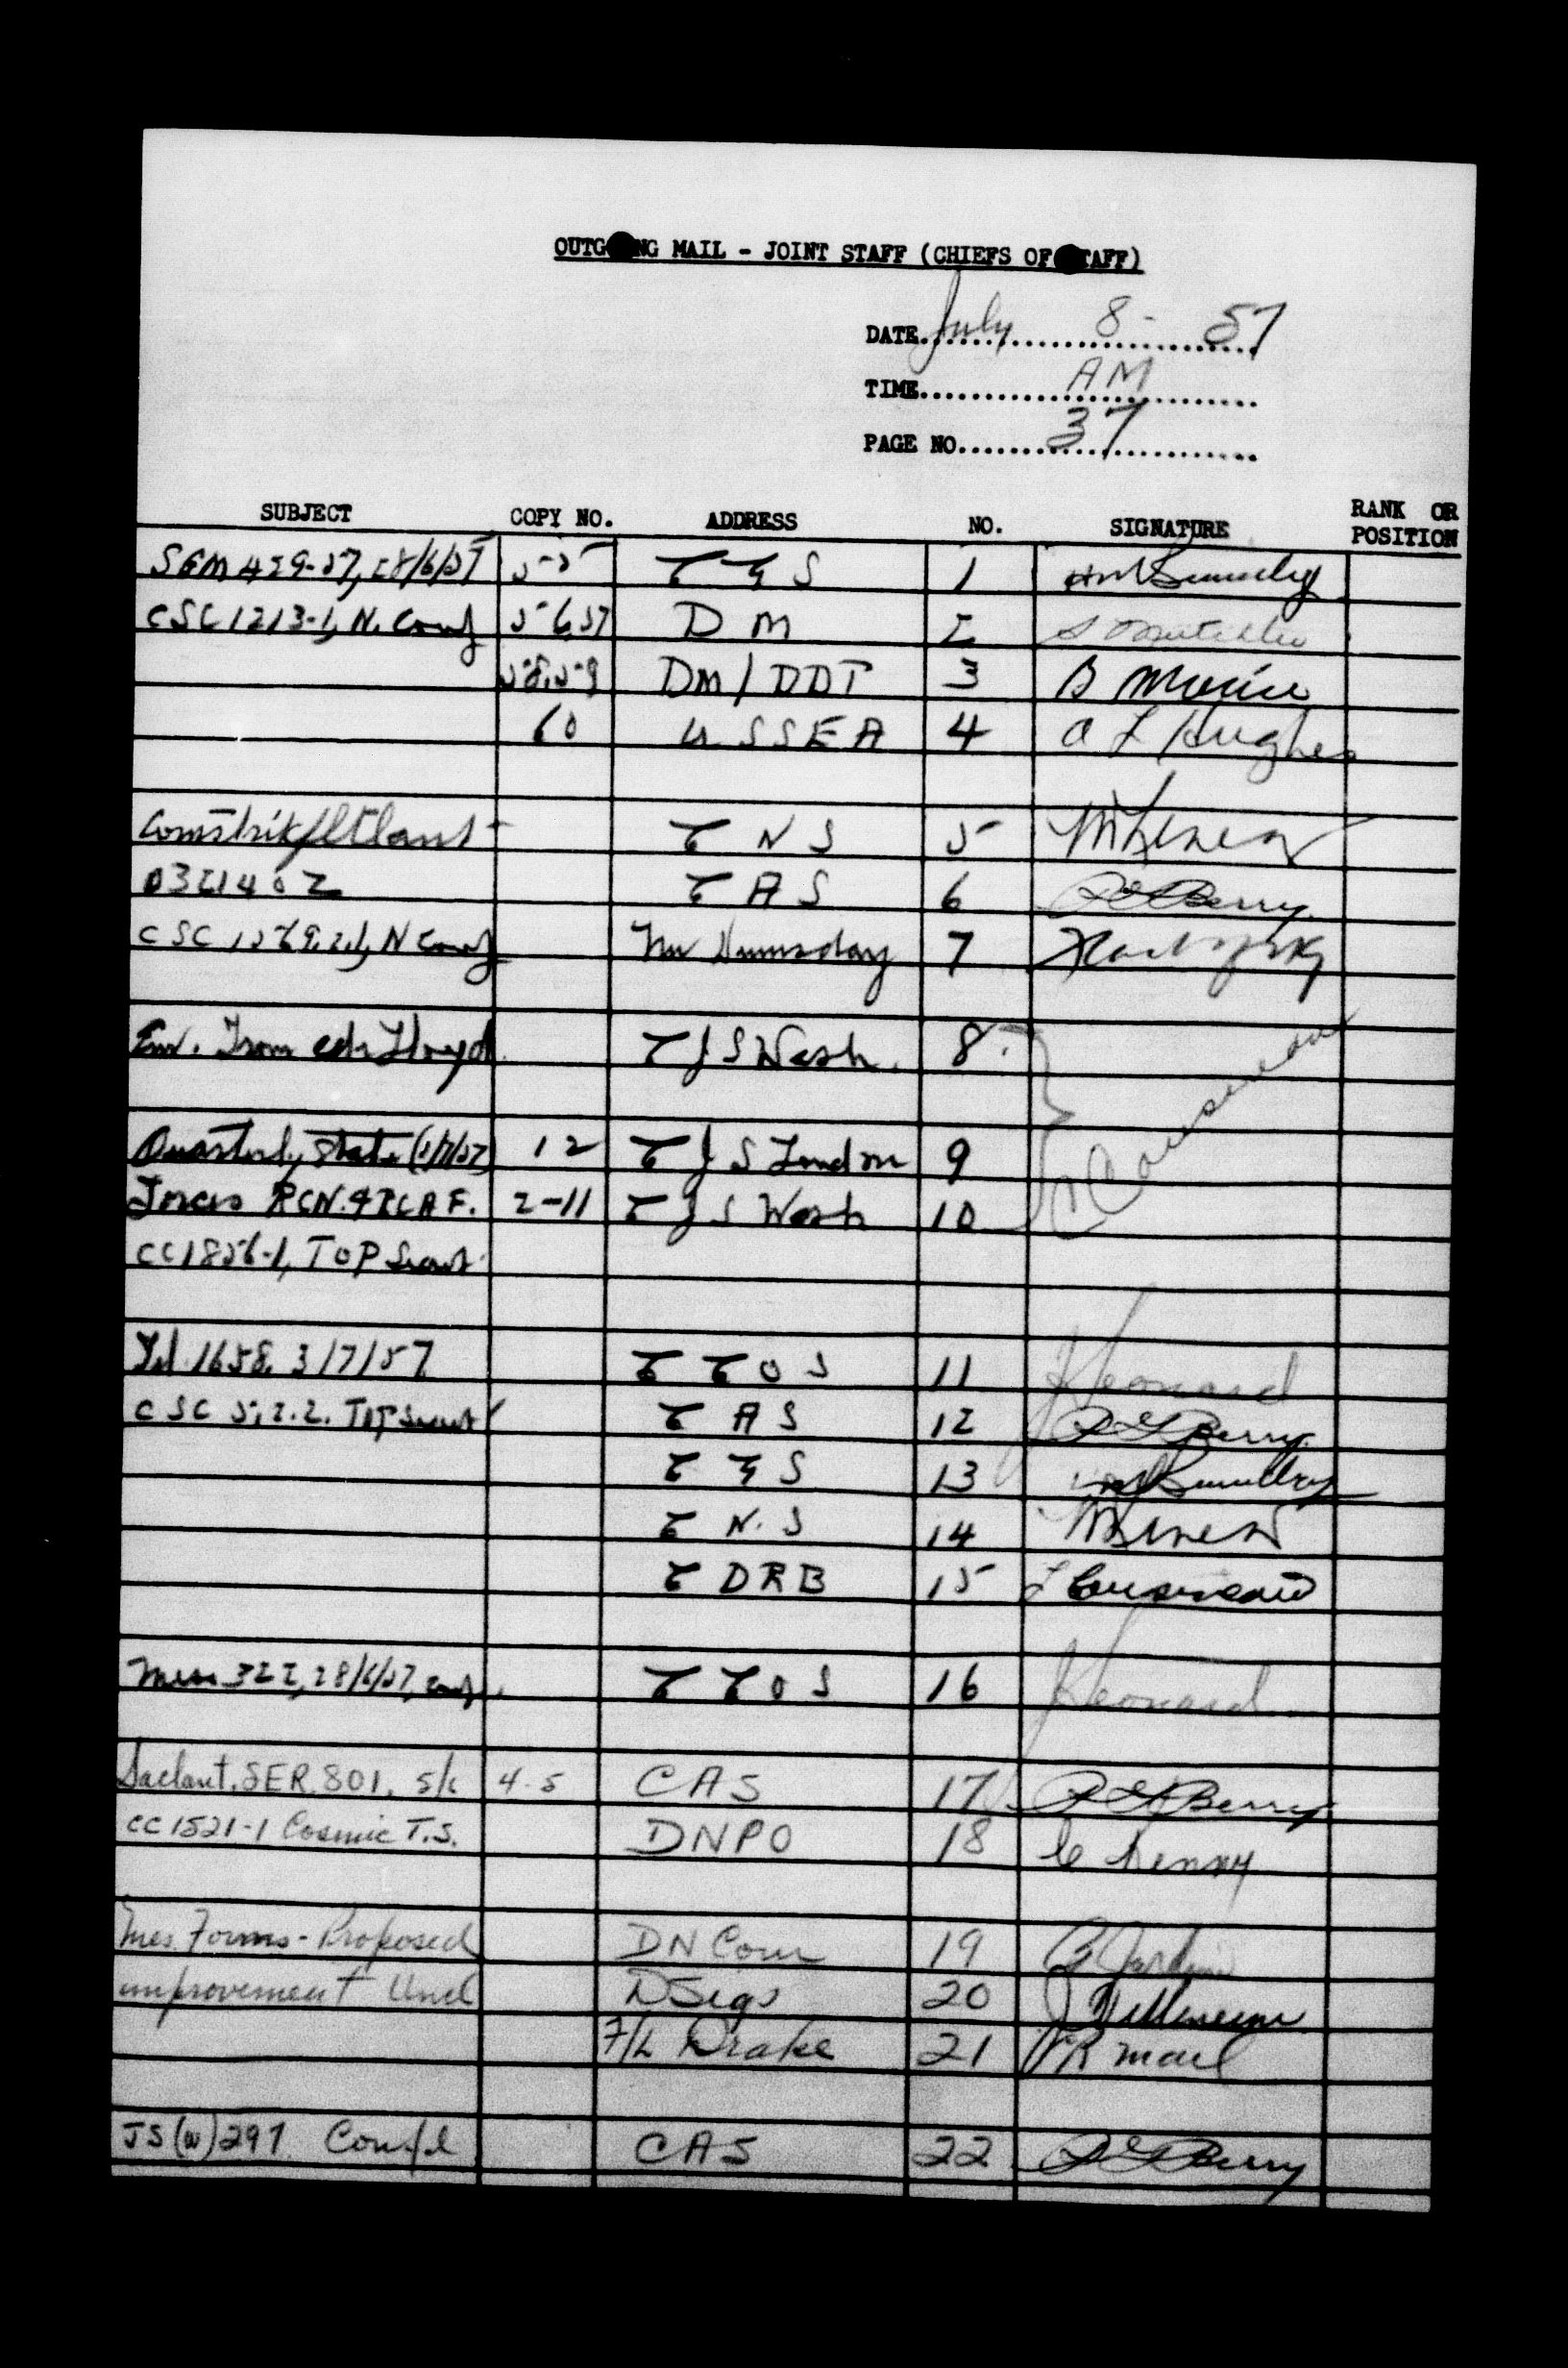 OUTGOING MAIL - JOINT STAFF (CHIEFS OF STAFF)
DATE July 8 - 57
TIME AM
PAGE NO. 37
SUBJECT COPY NO. ADDRESS NO. SIGNATURE RANK OR POSITION
SGM 429-57, 28/6/57 55 CGS 1
CSC 1213-1, N. Conf 56,57 DM 2
58,59 DM/DDP 3 B
60 USSEA 4 A L Hughes
Comstrikfltlant - CNS 5
032140Z CAS 6 Berry
CSC 1569.2.1, N Conf Mr 7
Env. From Cdr Lloyd CJS Wash. 8
Quarterly State (3/7/57) 12 CJS London 9
Forces RCN. & RCAF. 2-11 CJS Wash 10
CC1856-1, TOP Secret
Tel. 1658, 3/7/57 CCOS 11 Leonard
CSC 5,2.2. Top Secret CAS 12 Berry
CGS 13
CN.S 14
CDRB 15
Mess 322, 28/6/57, Conf. CCOS 16 Leonard
Saclant. SER. 801. 5/6 4-5 CAS 17 Berry
CC 1521-1 Cosmic T.S. DNPO 18 Kenny
Mes. Forms - Proposed DN Com 19
improvement Uncl D Sigs 20 J
F/L Drake 21
JS(W)297 Confd CAS 22 Berry